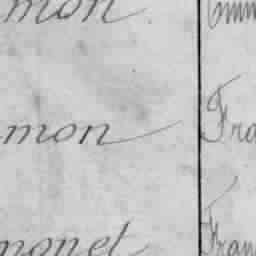 mon
mon Fra
monet Fran